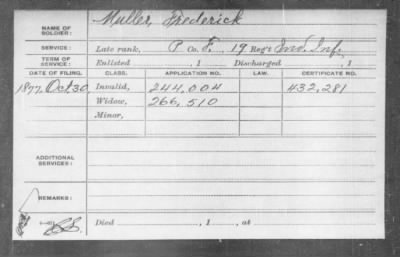 NAME OF SOLDIER: Muller, Frederick
SERVICE: Late rank, P Co. F, 19 Reg't Ind. Inf.
TERM OF SERVICE: Enlisted , 1 Discharged , 1
DATE OF FILING. CLASS. APPLICATION NO. LAW. CERTIFICATE NO.
1877. Oct 30 Invalid, 244,004 432,281
Widow, 266,510
Minor,
ADDITIONAL SERVICES:
REMARKS:
Died , 1 , at